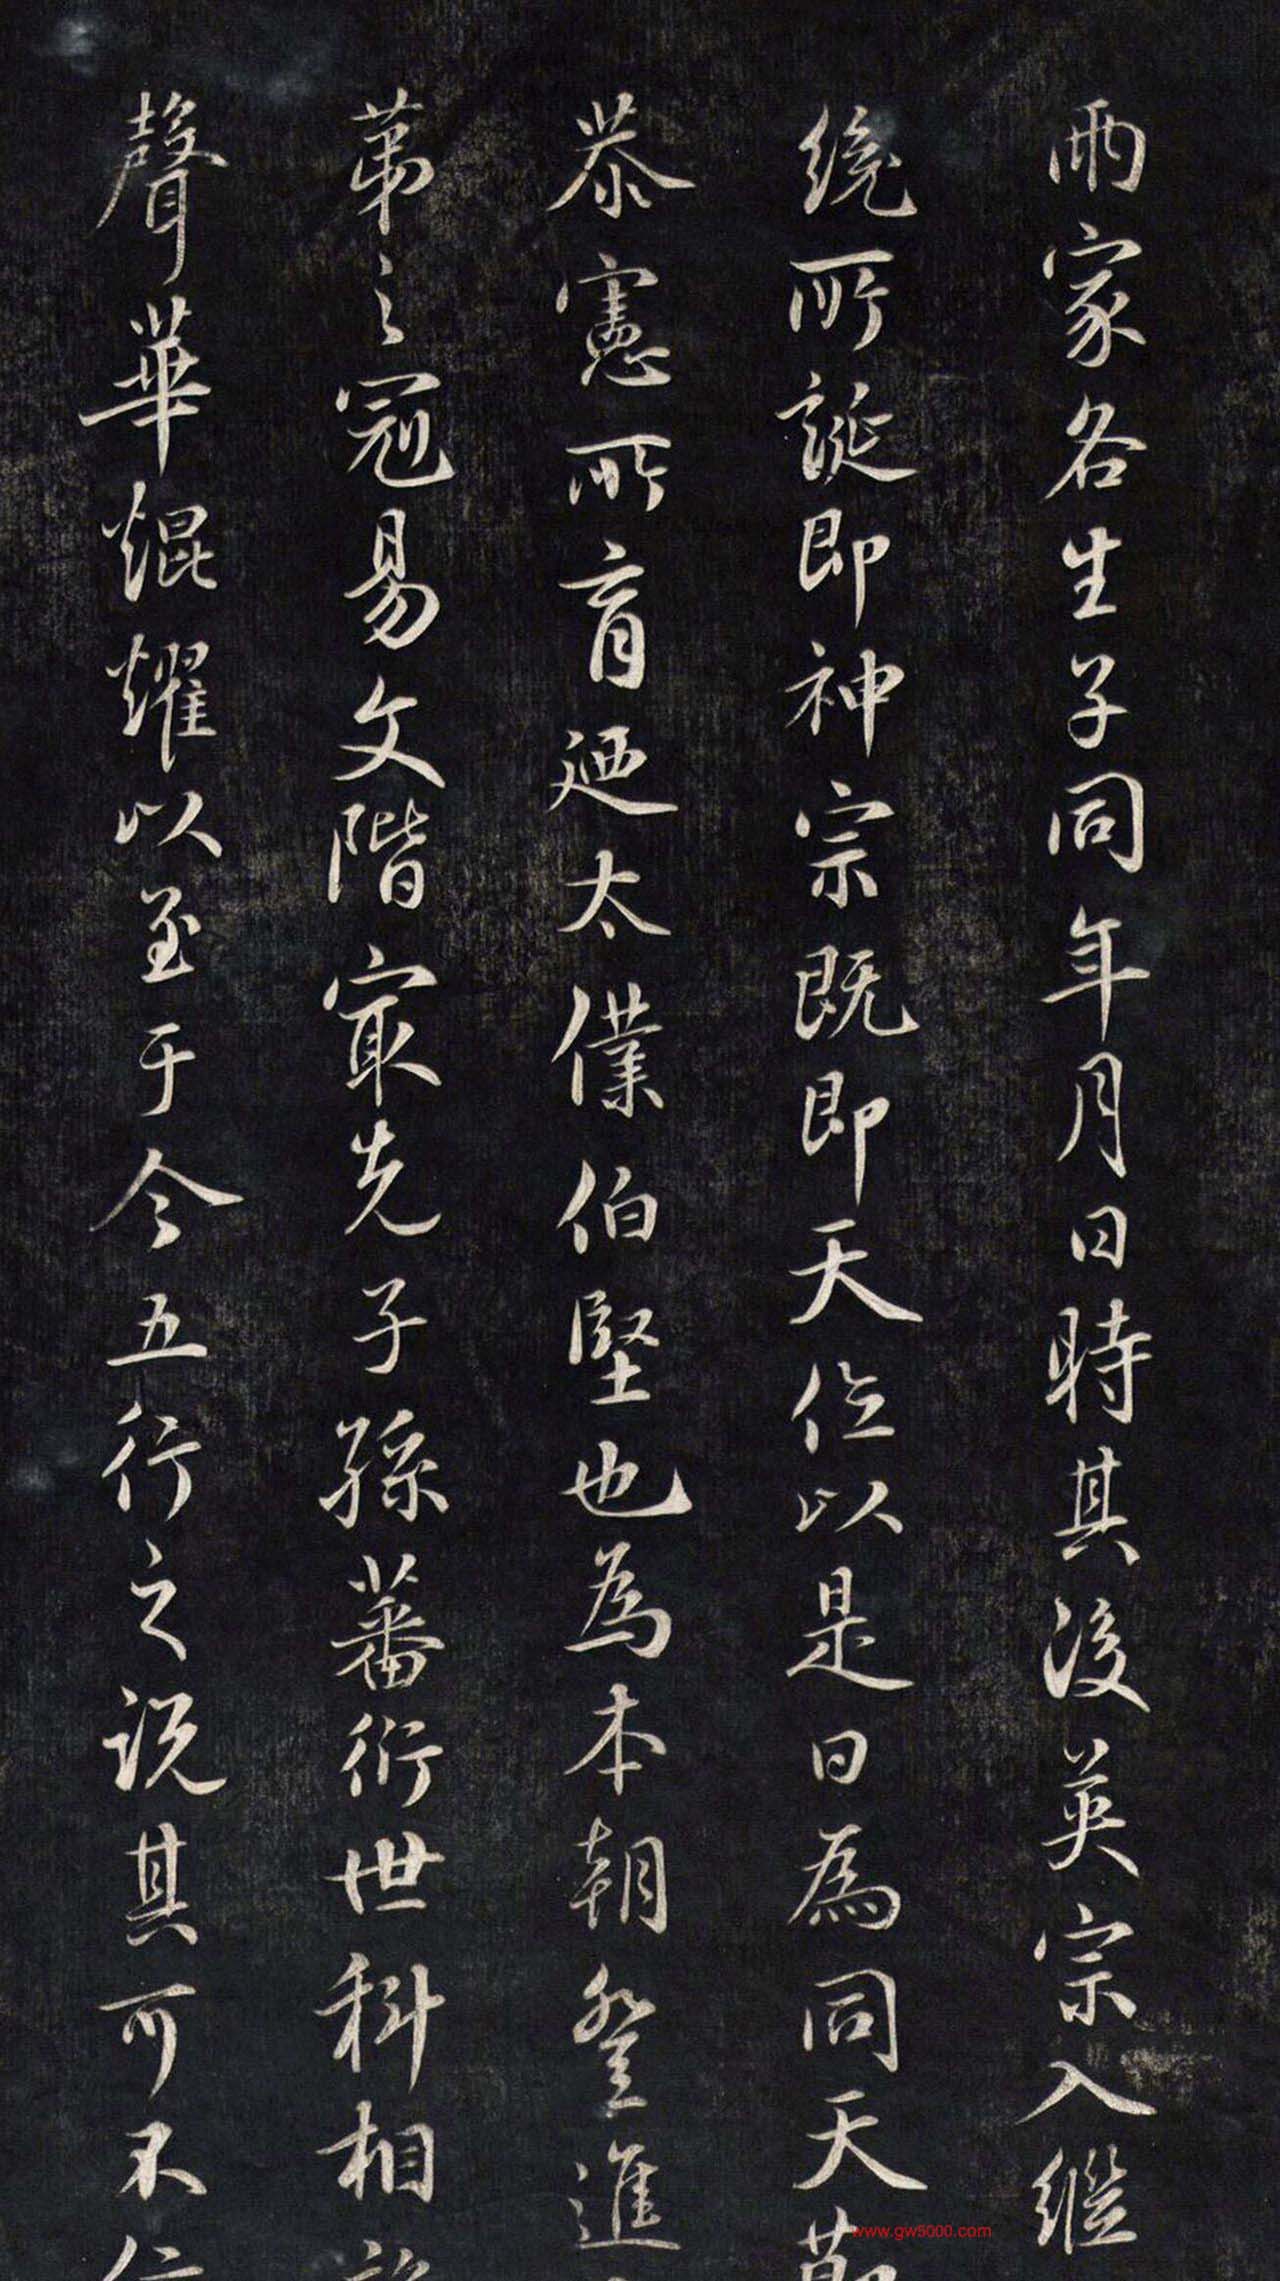 兩家各生子同年月日時其後英宗入繼
統所誕即神宗既即天位以是日為同天節
恭憲所育廼太僕伯堅也為本朝登進
苐之冠易文階㝡先子孫蕃衍世科相
聲華焜耀以至于今五行之説其可不信
www.gw5000.com